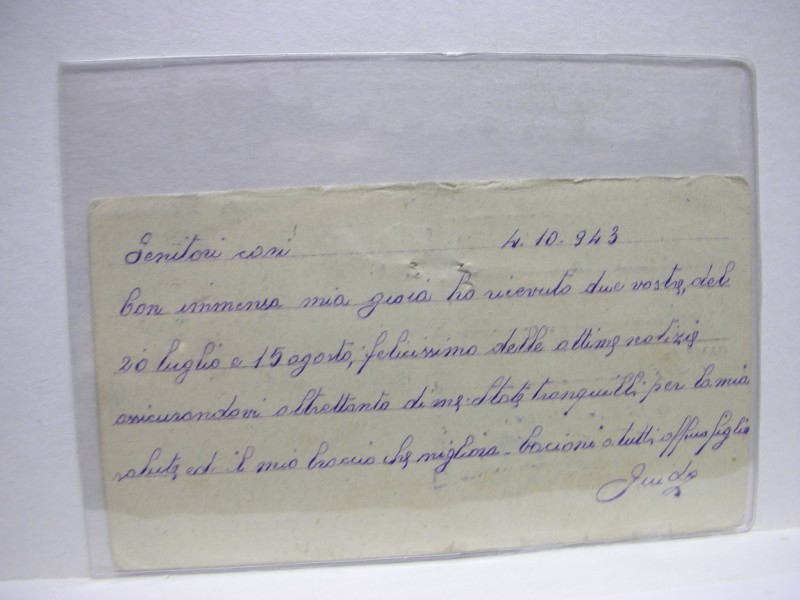 Genitori cari 4. 10. 943
Con immensa mia gioia ho ricevuto due vostre, del
20 luglio e 15 agosto, felicissimo delle ottime notizie
assicurandovi altrettanto di me. State tranquilli per la mia
salute ed il mio braccio che migliora - bacioni a tutti affmo figlio
Guido